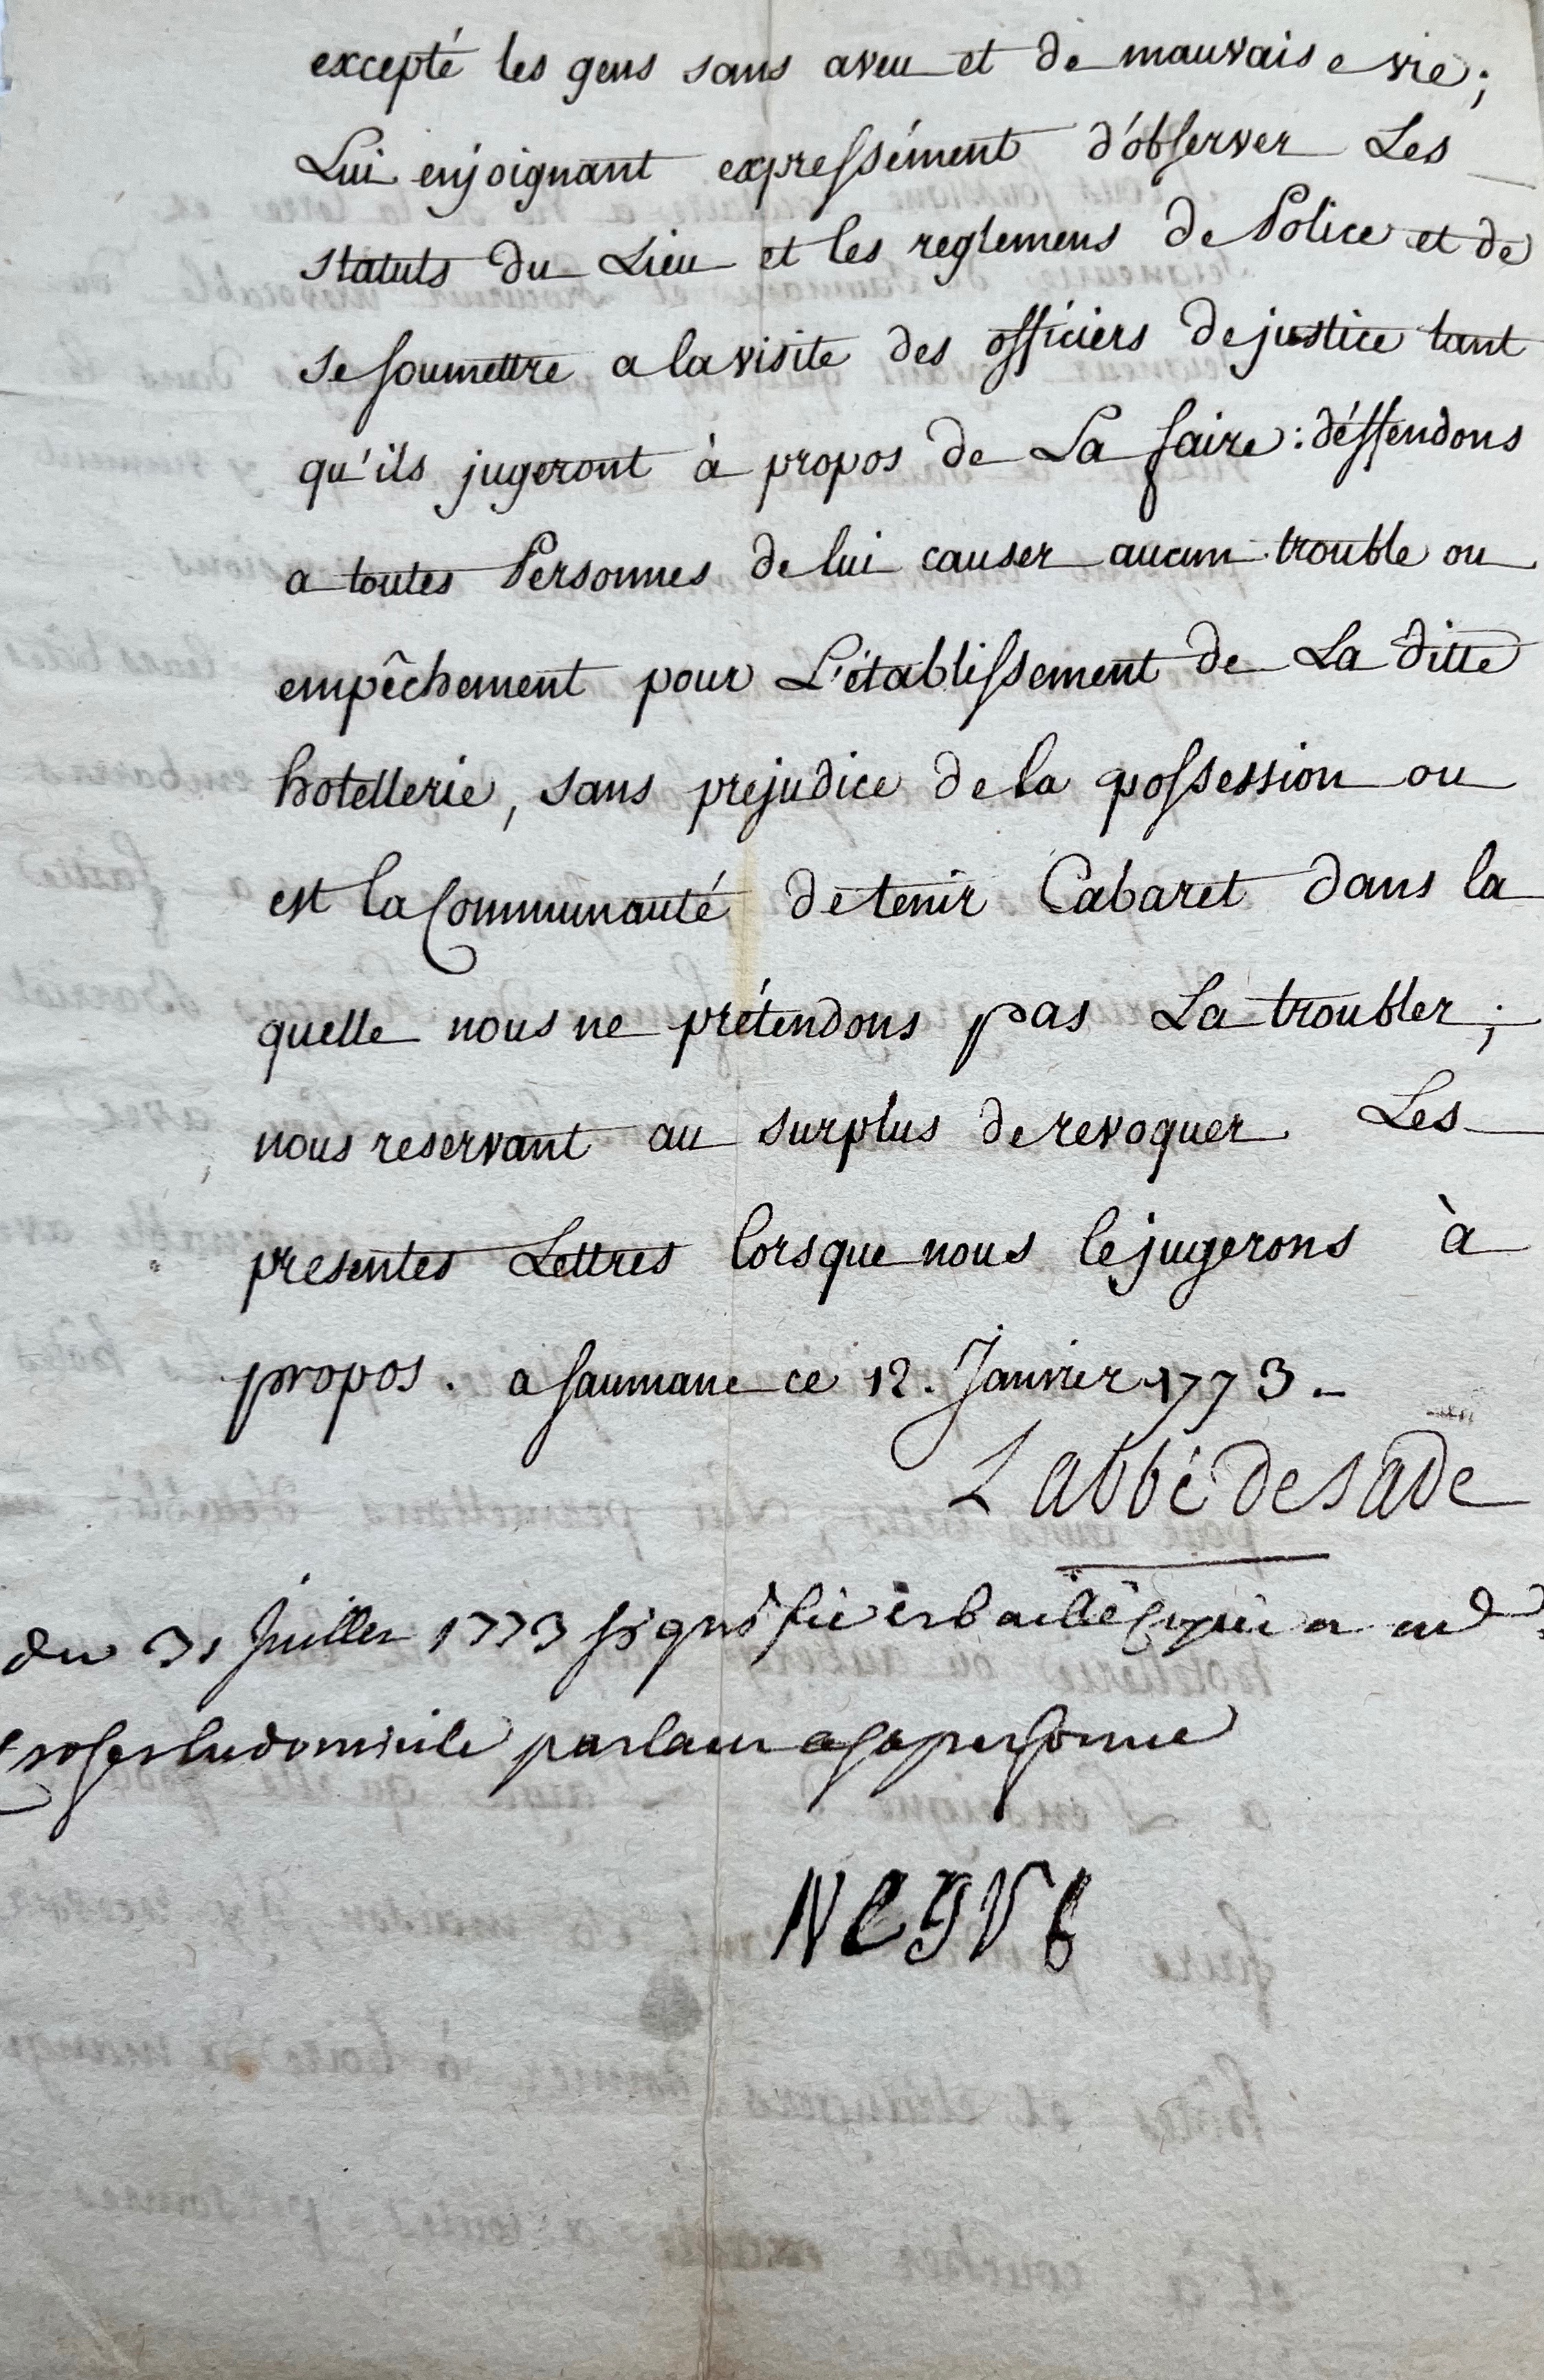 excepté les gens sans aveu et de mauvaise vie ;
Lui enjoignant expressément d'observer Les
statuts du Lieu et les reglemens de Police et de
se soumettre a la visite des officiers de justice tant
qu'ils jugeront à propos de La faire : déffendons
a toutes Personnes de lui causer aucun trouble ou
empêchement pour L'établissement de La ditte
hotellerie, sans prejudice de la possession ou
est la Communauté de tenir Cabaret dans la
quelle nous ne prétendons pas La troubler ;
nous reservant au surplus de revoquer Les
presentes Lettres lorsque nous le jugerons à
propos. a saumane ce 12. Janvier 1773.
L abbé de sade
du 31 Juillet 1773 signifié et baillé copie a
domicile parlant a sa personne